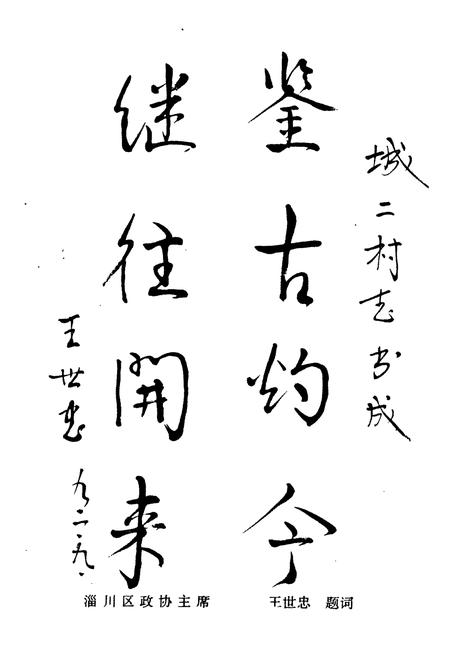 城二村志书成
鉴古灼今
继往开来
王世忠
九二.九.
淄川区政协主席 王世忠 题词